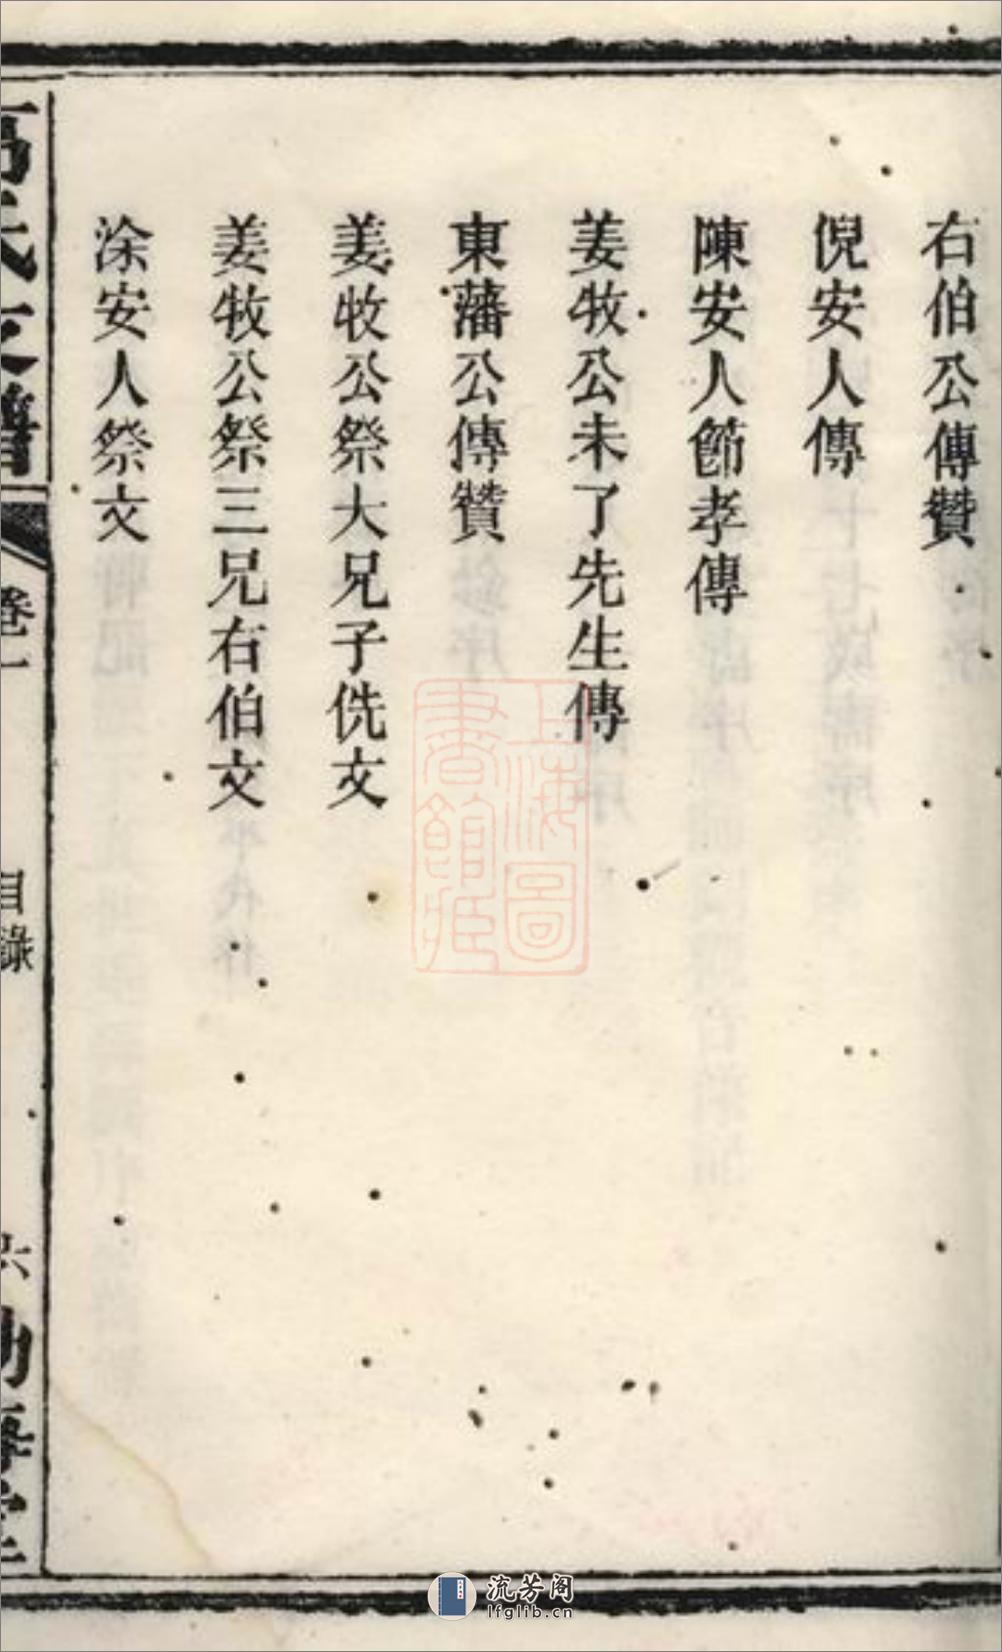 右伯公傳贊
倪安人傳
陳安人節孝傳
姜牧公未了先生傳
東藩公傳贊
姜牧公祭大兄子侁文
姜牧公祭三兄右伯文
涂安人祭文
氏支譜
卷一
目錄
六
上海圖
書館藏
流芳阁
lfglib.cn